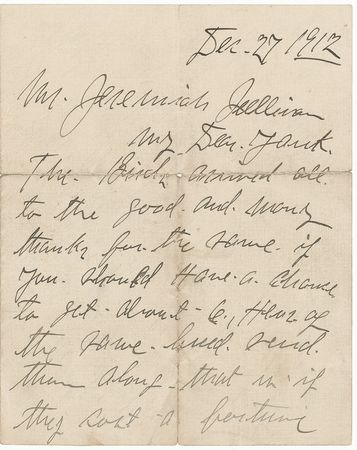 Dec. 27 1912
Mr. Jeremiah Sullivan
My Dear Frank.
The Birds arived all
to the good. and many
thanks for. the same. if
you. should Have. a. chance
to get - about - 6, Hens of
the same - breed. send.
them along - that is if
they cost - a fortune